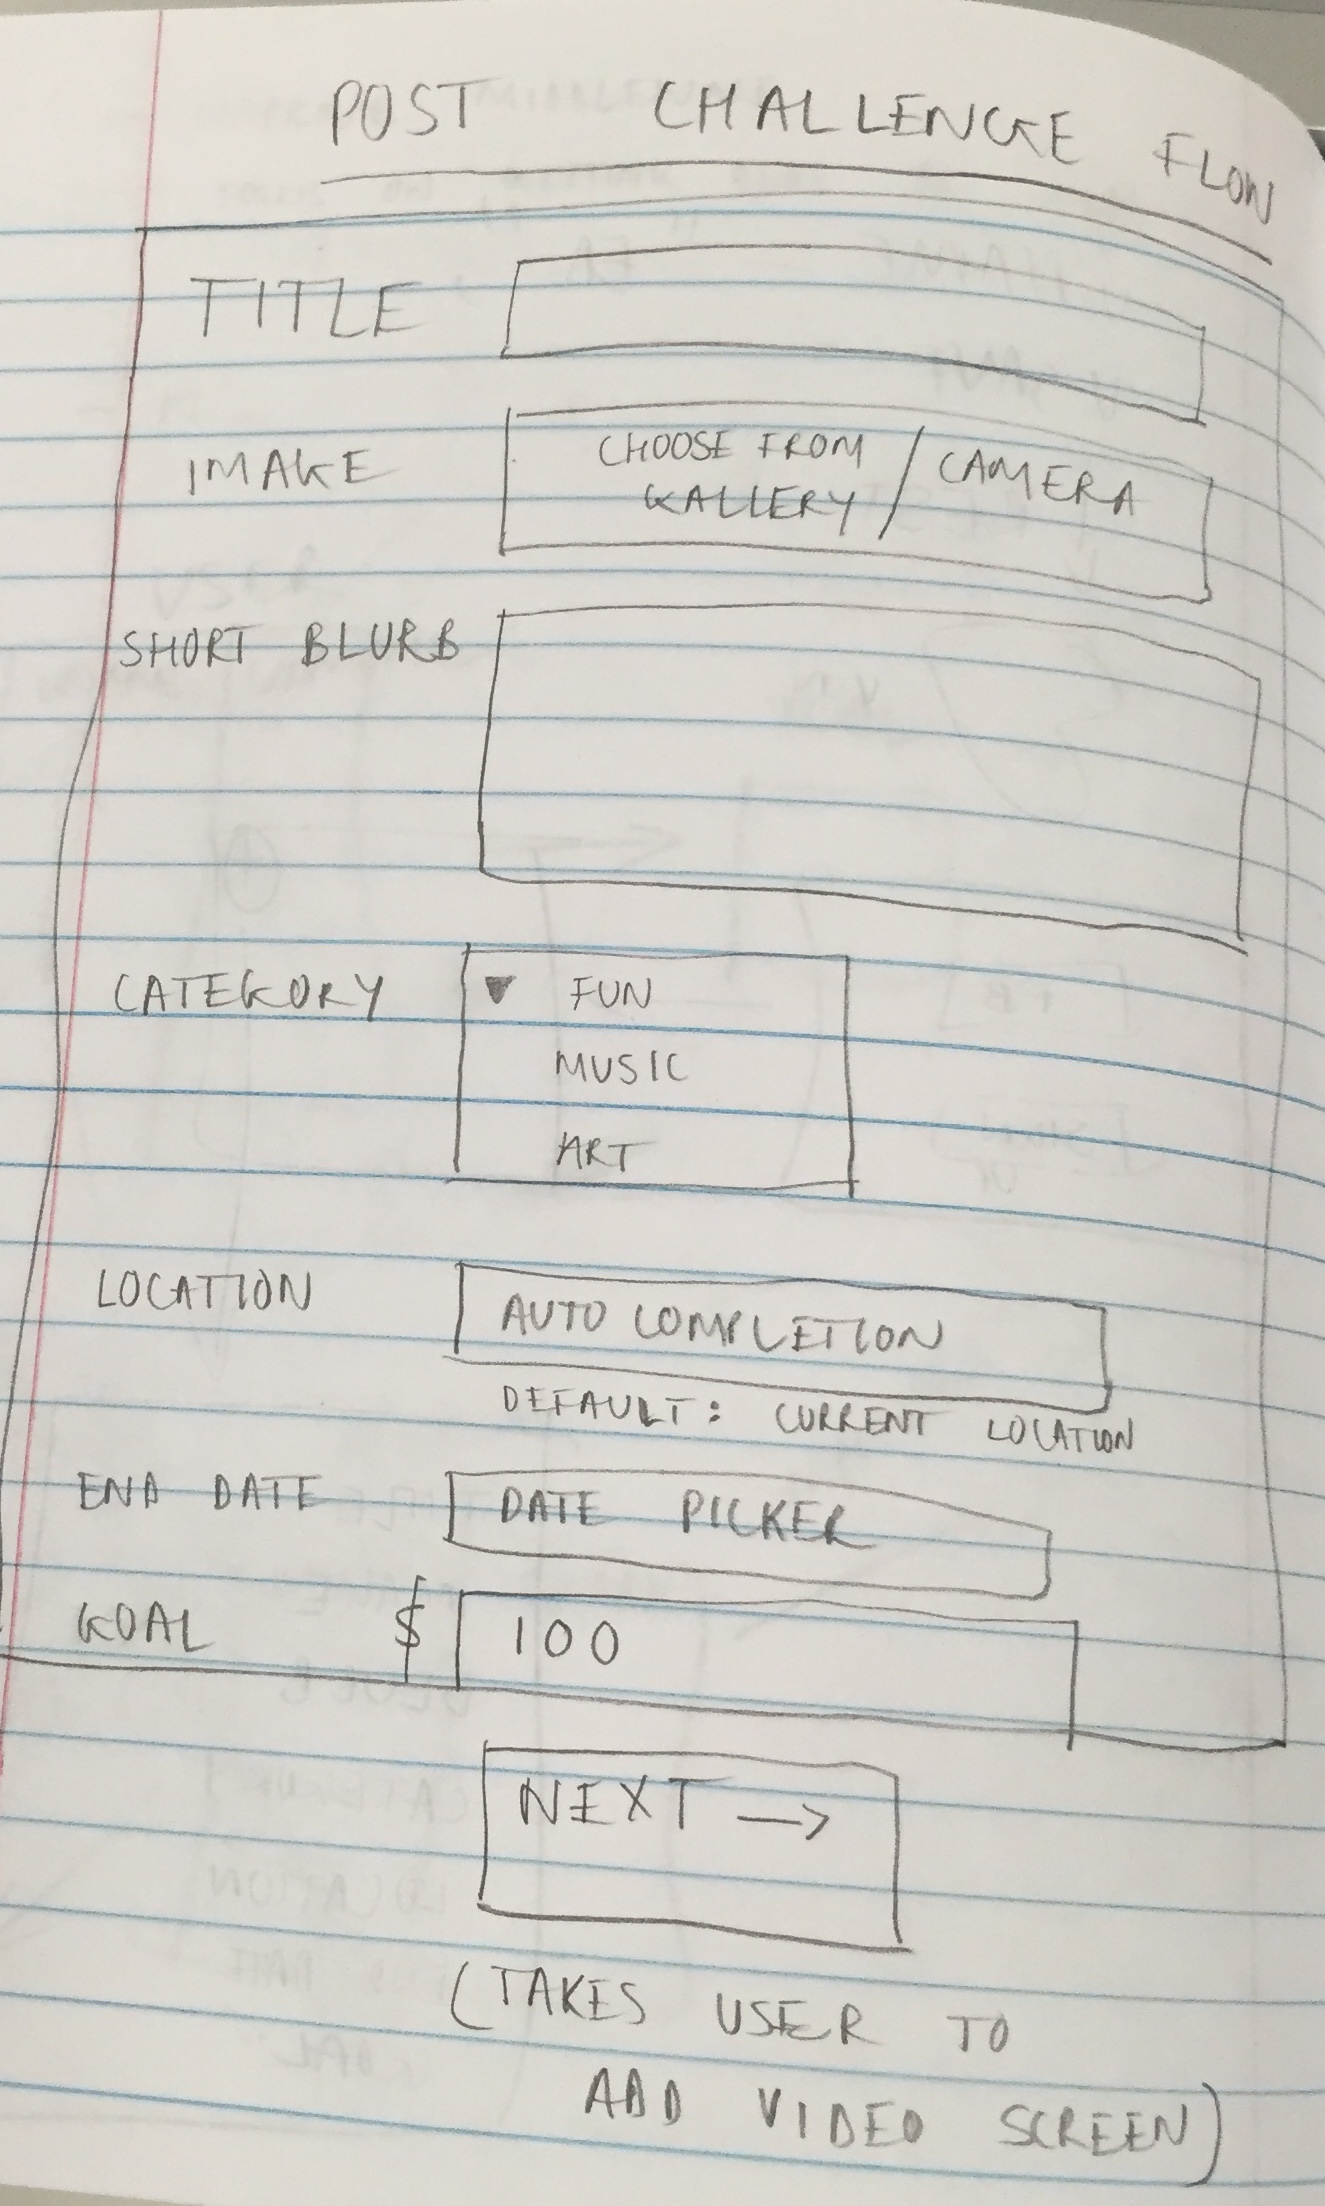 POST CHALLENGE FLOW
TITLE
IMAGE CHOOSE FROM / CAMERA
GALLERY
SHORT BLURB
CATEGORY ▼ FUN
MUSIC
ART
LOCATION AUTO COMPLETION
DEFAULT: CURRENT LOCATION
END DATE DATE PICKER
GOAL $ 100
NEXT →
(TAKES USER TO
ADD VIDEO SCREEN)